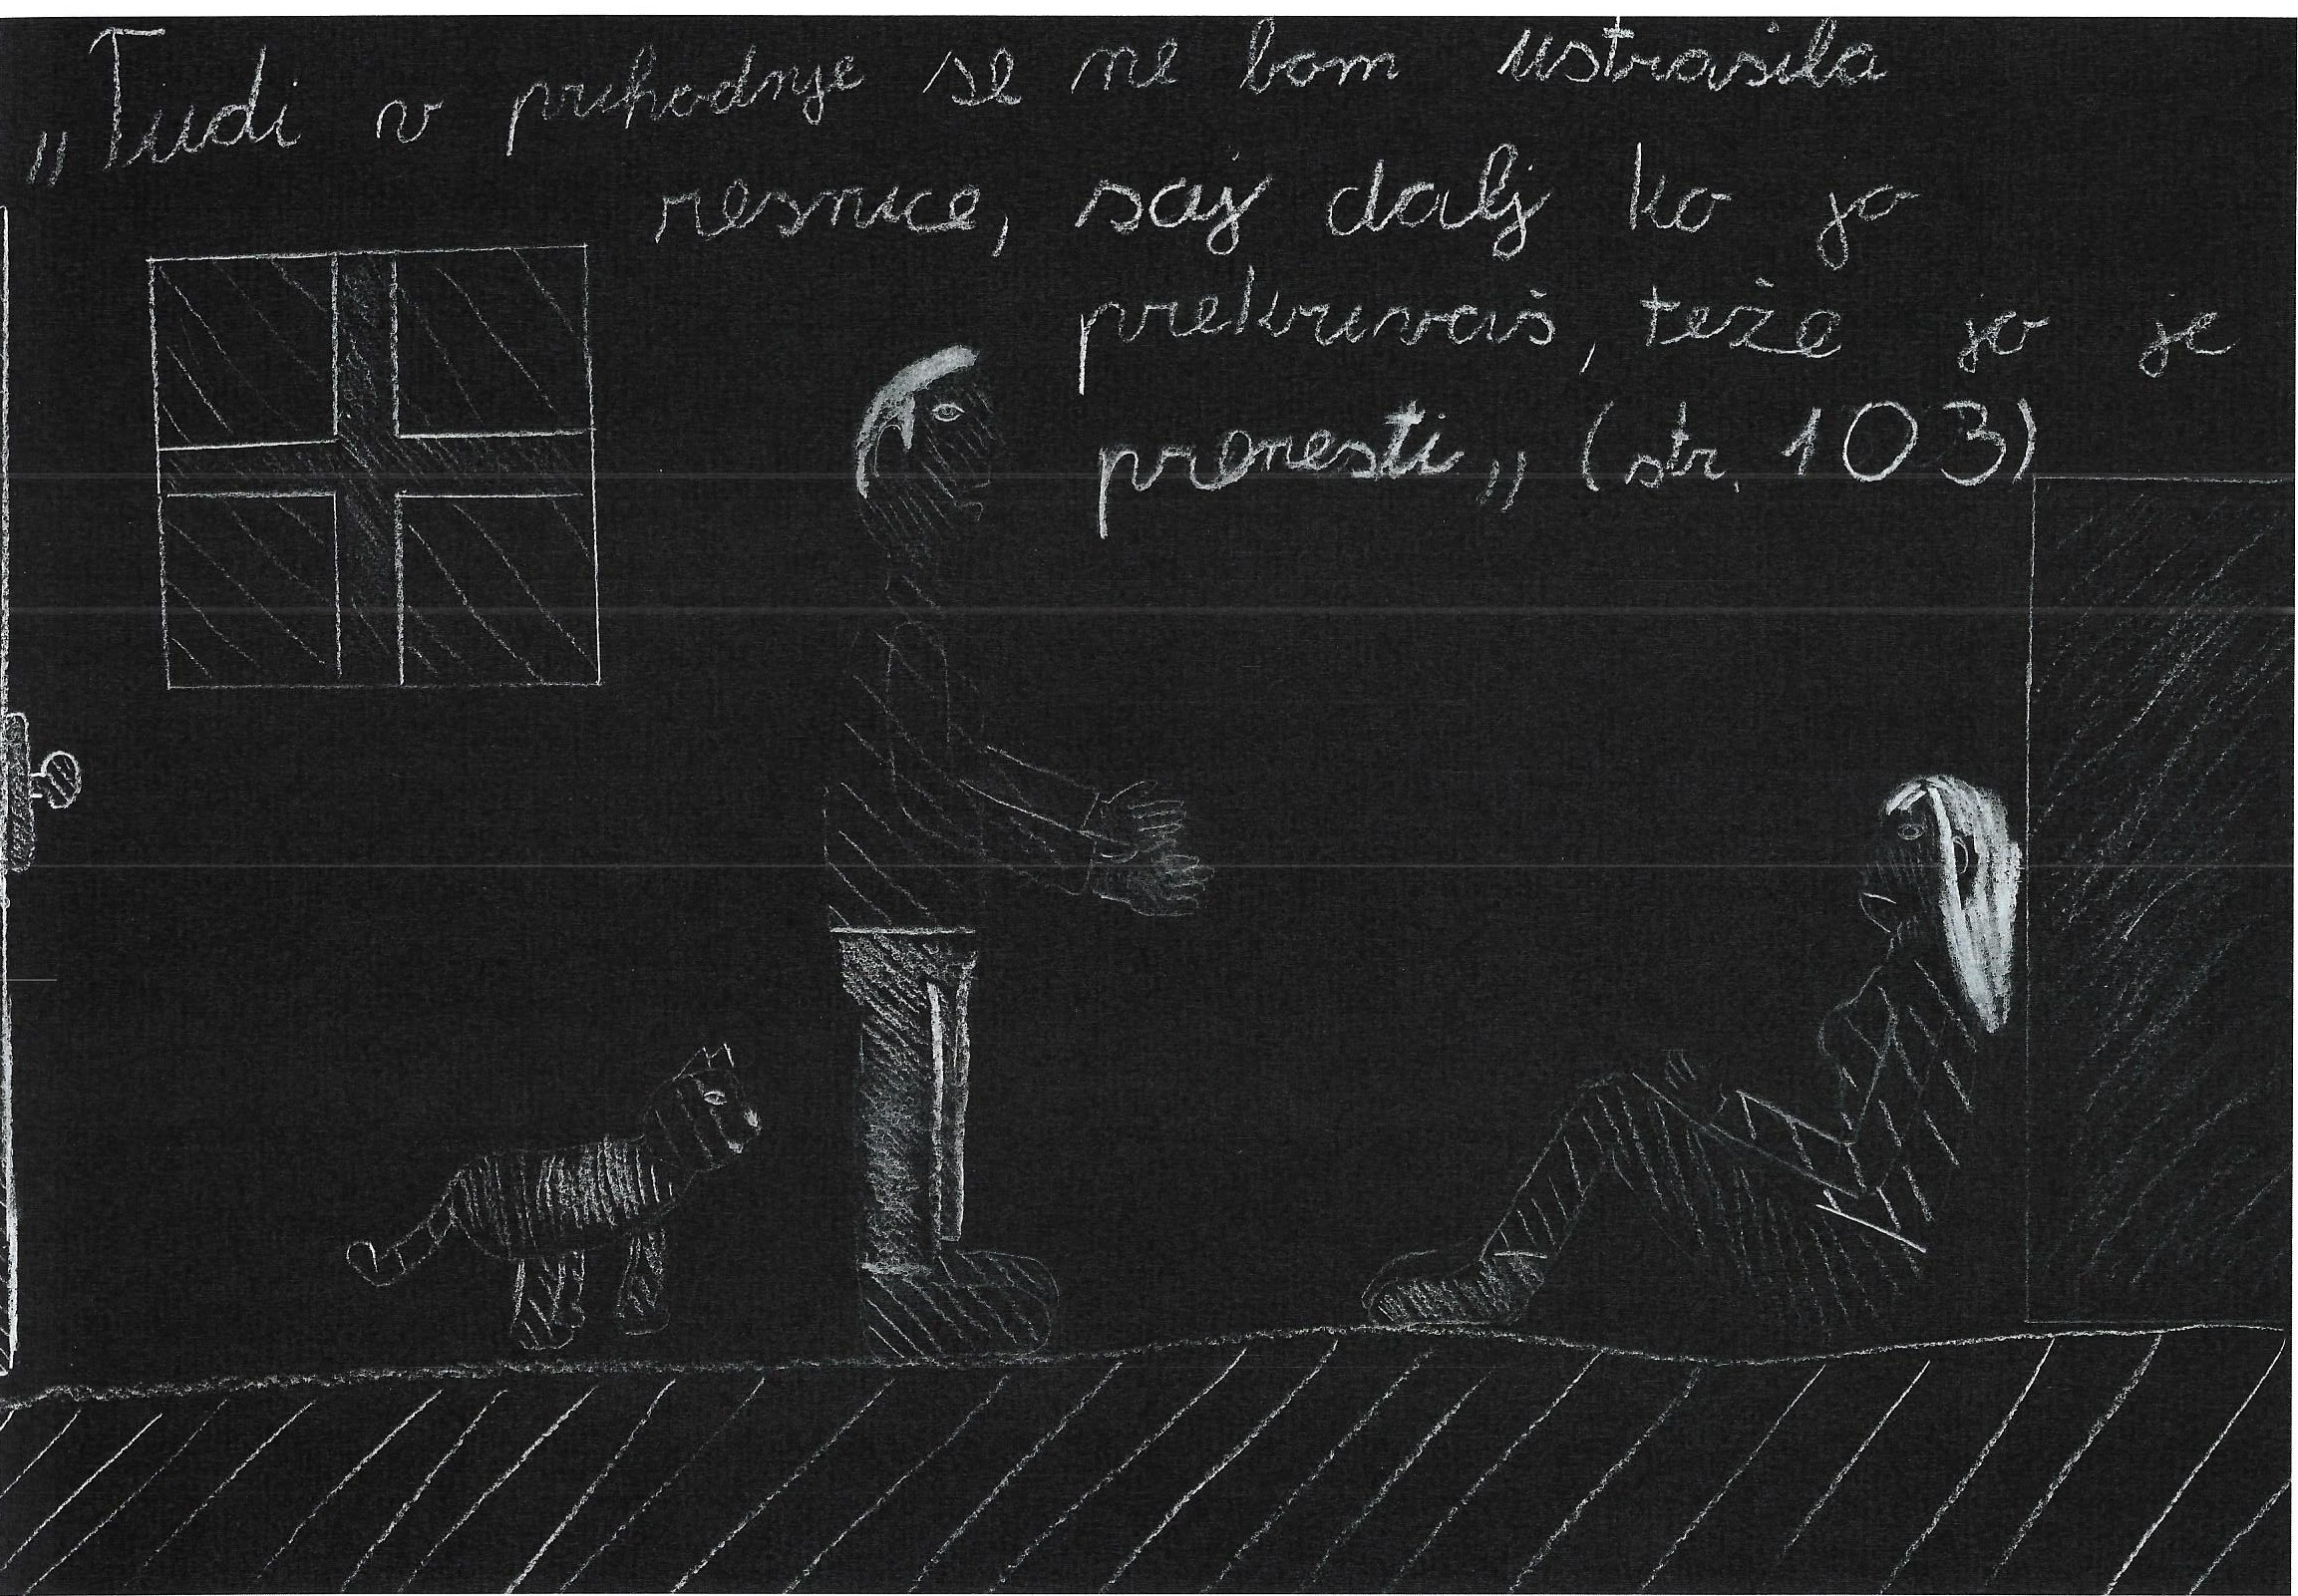 „Tudi v prihodnje se ne bom ustrašila
resnice, saj dalj ko jo
prekrivaš, teže jo je
prenesti„ (str. 103)